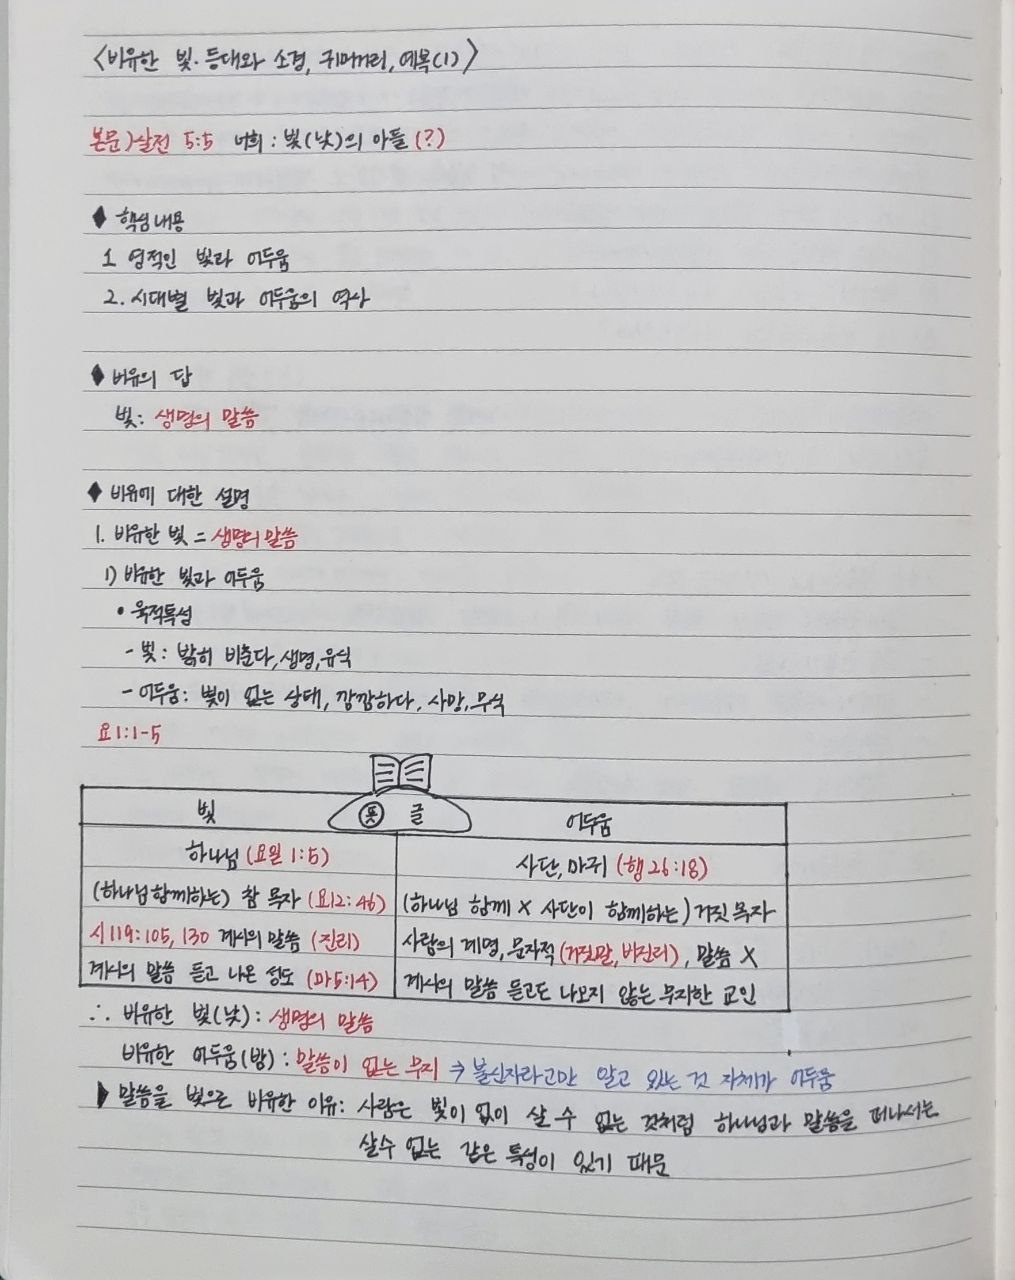 <비유한 빛·등대와 소경, 귀머거리, 예복(1)>
본문)살전 5:5 너희 : 빛(낮)의 아들(?)
◆ 핵심내용
1. 영적인 빛과 어두움
2. 시대별 빛과 어두움의 역사
◆ 비유의 답
빛: 생명의 말씀
◆ 비유에 대한 설명
1. 비유한 빛 = 생명의 말씀
1) 비유한 빛과 어두움
• 육적특성
- 빛: 밝히 비춘다, 생명, 유식
- 어두움: 빛이 없는 상태, 깜깜하다, 사망, 무식
요 1:1-5
빛 뜻 글 어두움
하나님 (요일 1:5) 사단, 마귀 (행 26:18)
(하나님 함께하는) 참 목자 (요12:46) (하나님 함께 X 사단이 함께하는) 거짓 목자
시 119:105, 130 계시의 말씀 (진리) 사람의 계명, 문자적 (거짓말, 비진리), 말씀 X
계시의 말씀 듣고 나온 성도 (마5:14) 계시의 말씀 듣고도 나오지 않는 무지한 교인
∴ 비유한 빛(낮) : 생명의 말씀
비유한 어두움(밤) : 말씀이 없는 무지 → 불신자라고만 알고 있는 것 자체가 어두움
▶ 말씀을 빛으로 비유한 이유: 사람은 빛이 없이 살 수 없는 것처럼 하나님과 말씀을 떠나서는
살수 없는 같은 특성이 있기 때문